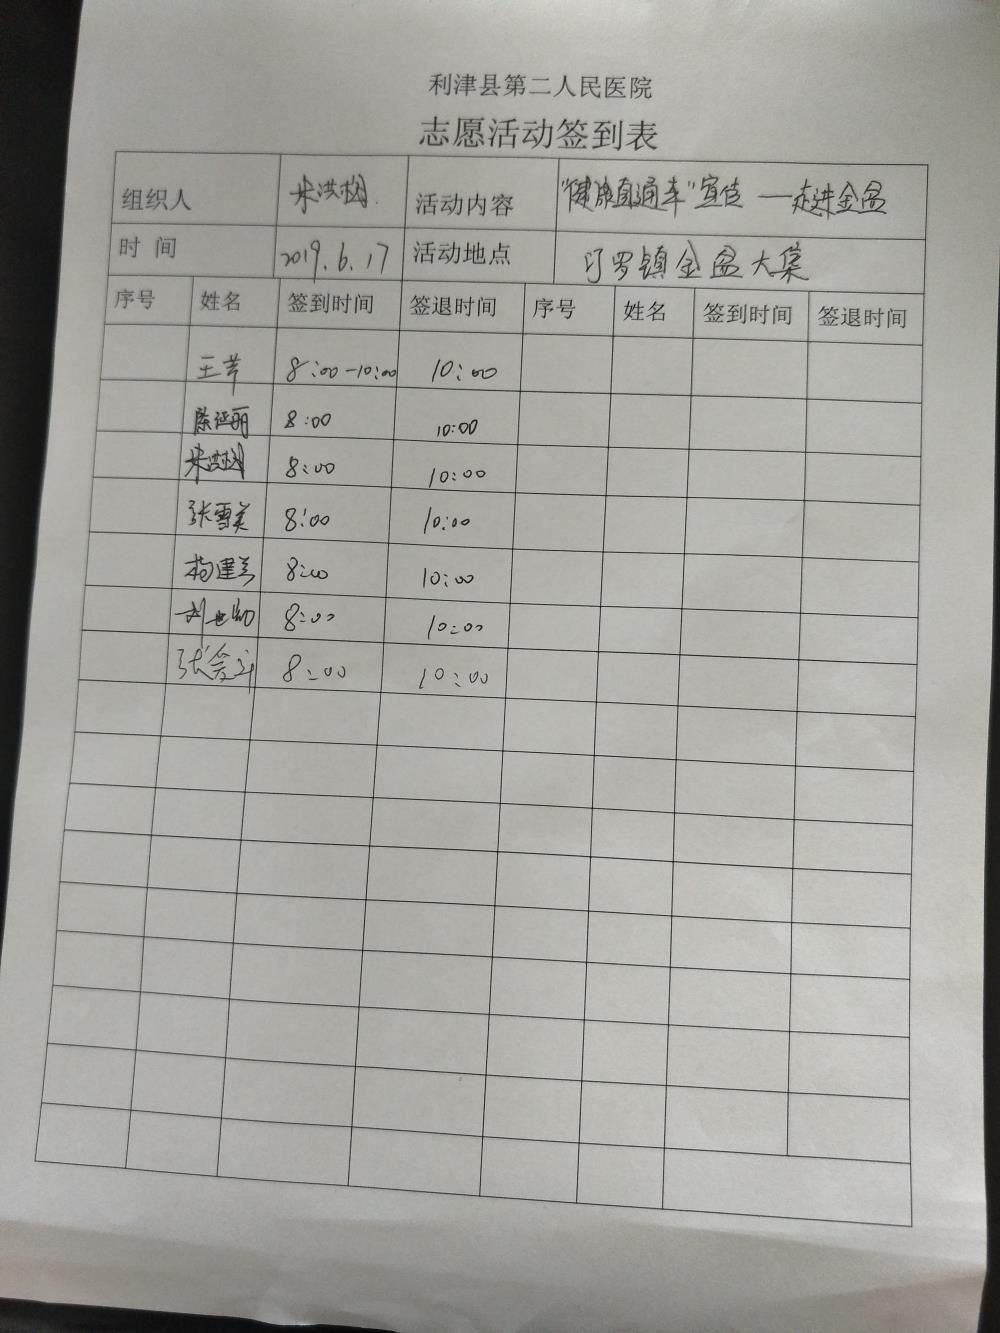 利津县第二人民医院
志愿活动签到表
组织人 宋洪树 活动内容 "健康直通车"宣传——走进金盆
时 间 2019.6.17 活动地点 汀罗镇金盆大集
序号 姓名 签到时间 签退时间 序号 姓名 签到时间 签退时间
王芹 8:00-10:00 10:00
陈延丽 8:00 10:00
宋洪树 8:00 10:00
张雪美 8:00 10:00
8:00 10:00
8:00 10:00
8:00 10:00